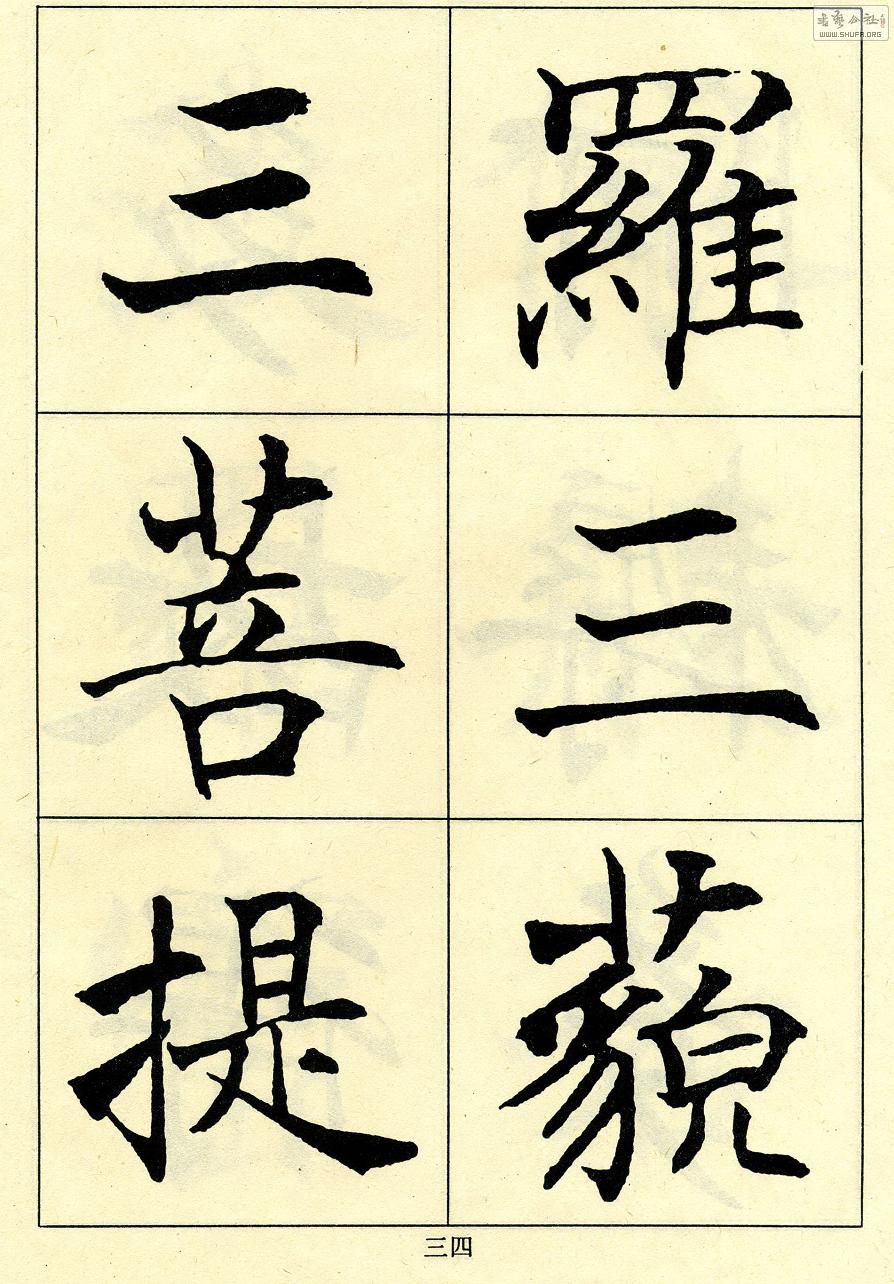 羅三藐
三菩提
三四
書藝公社
WWW.SHUFA.ORG